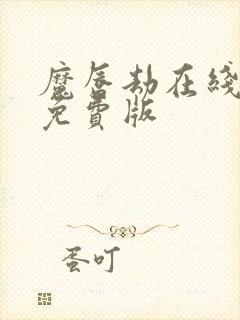 魔唇劫在线
免費版
蛋叮